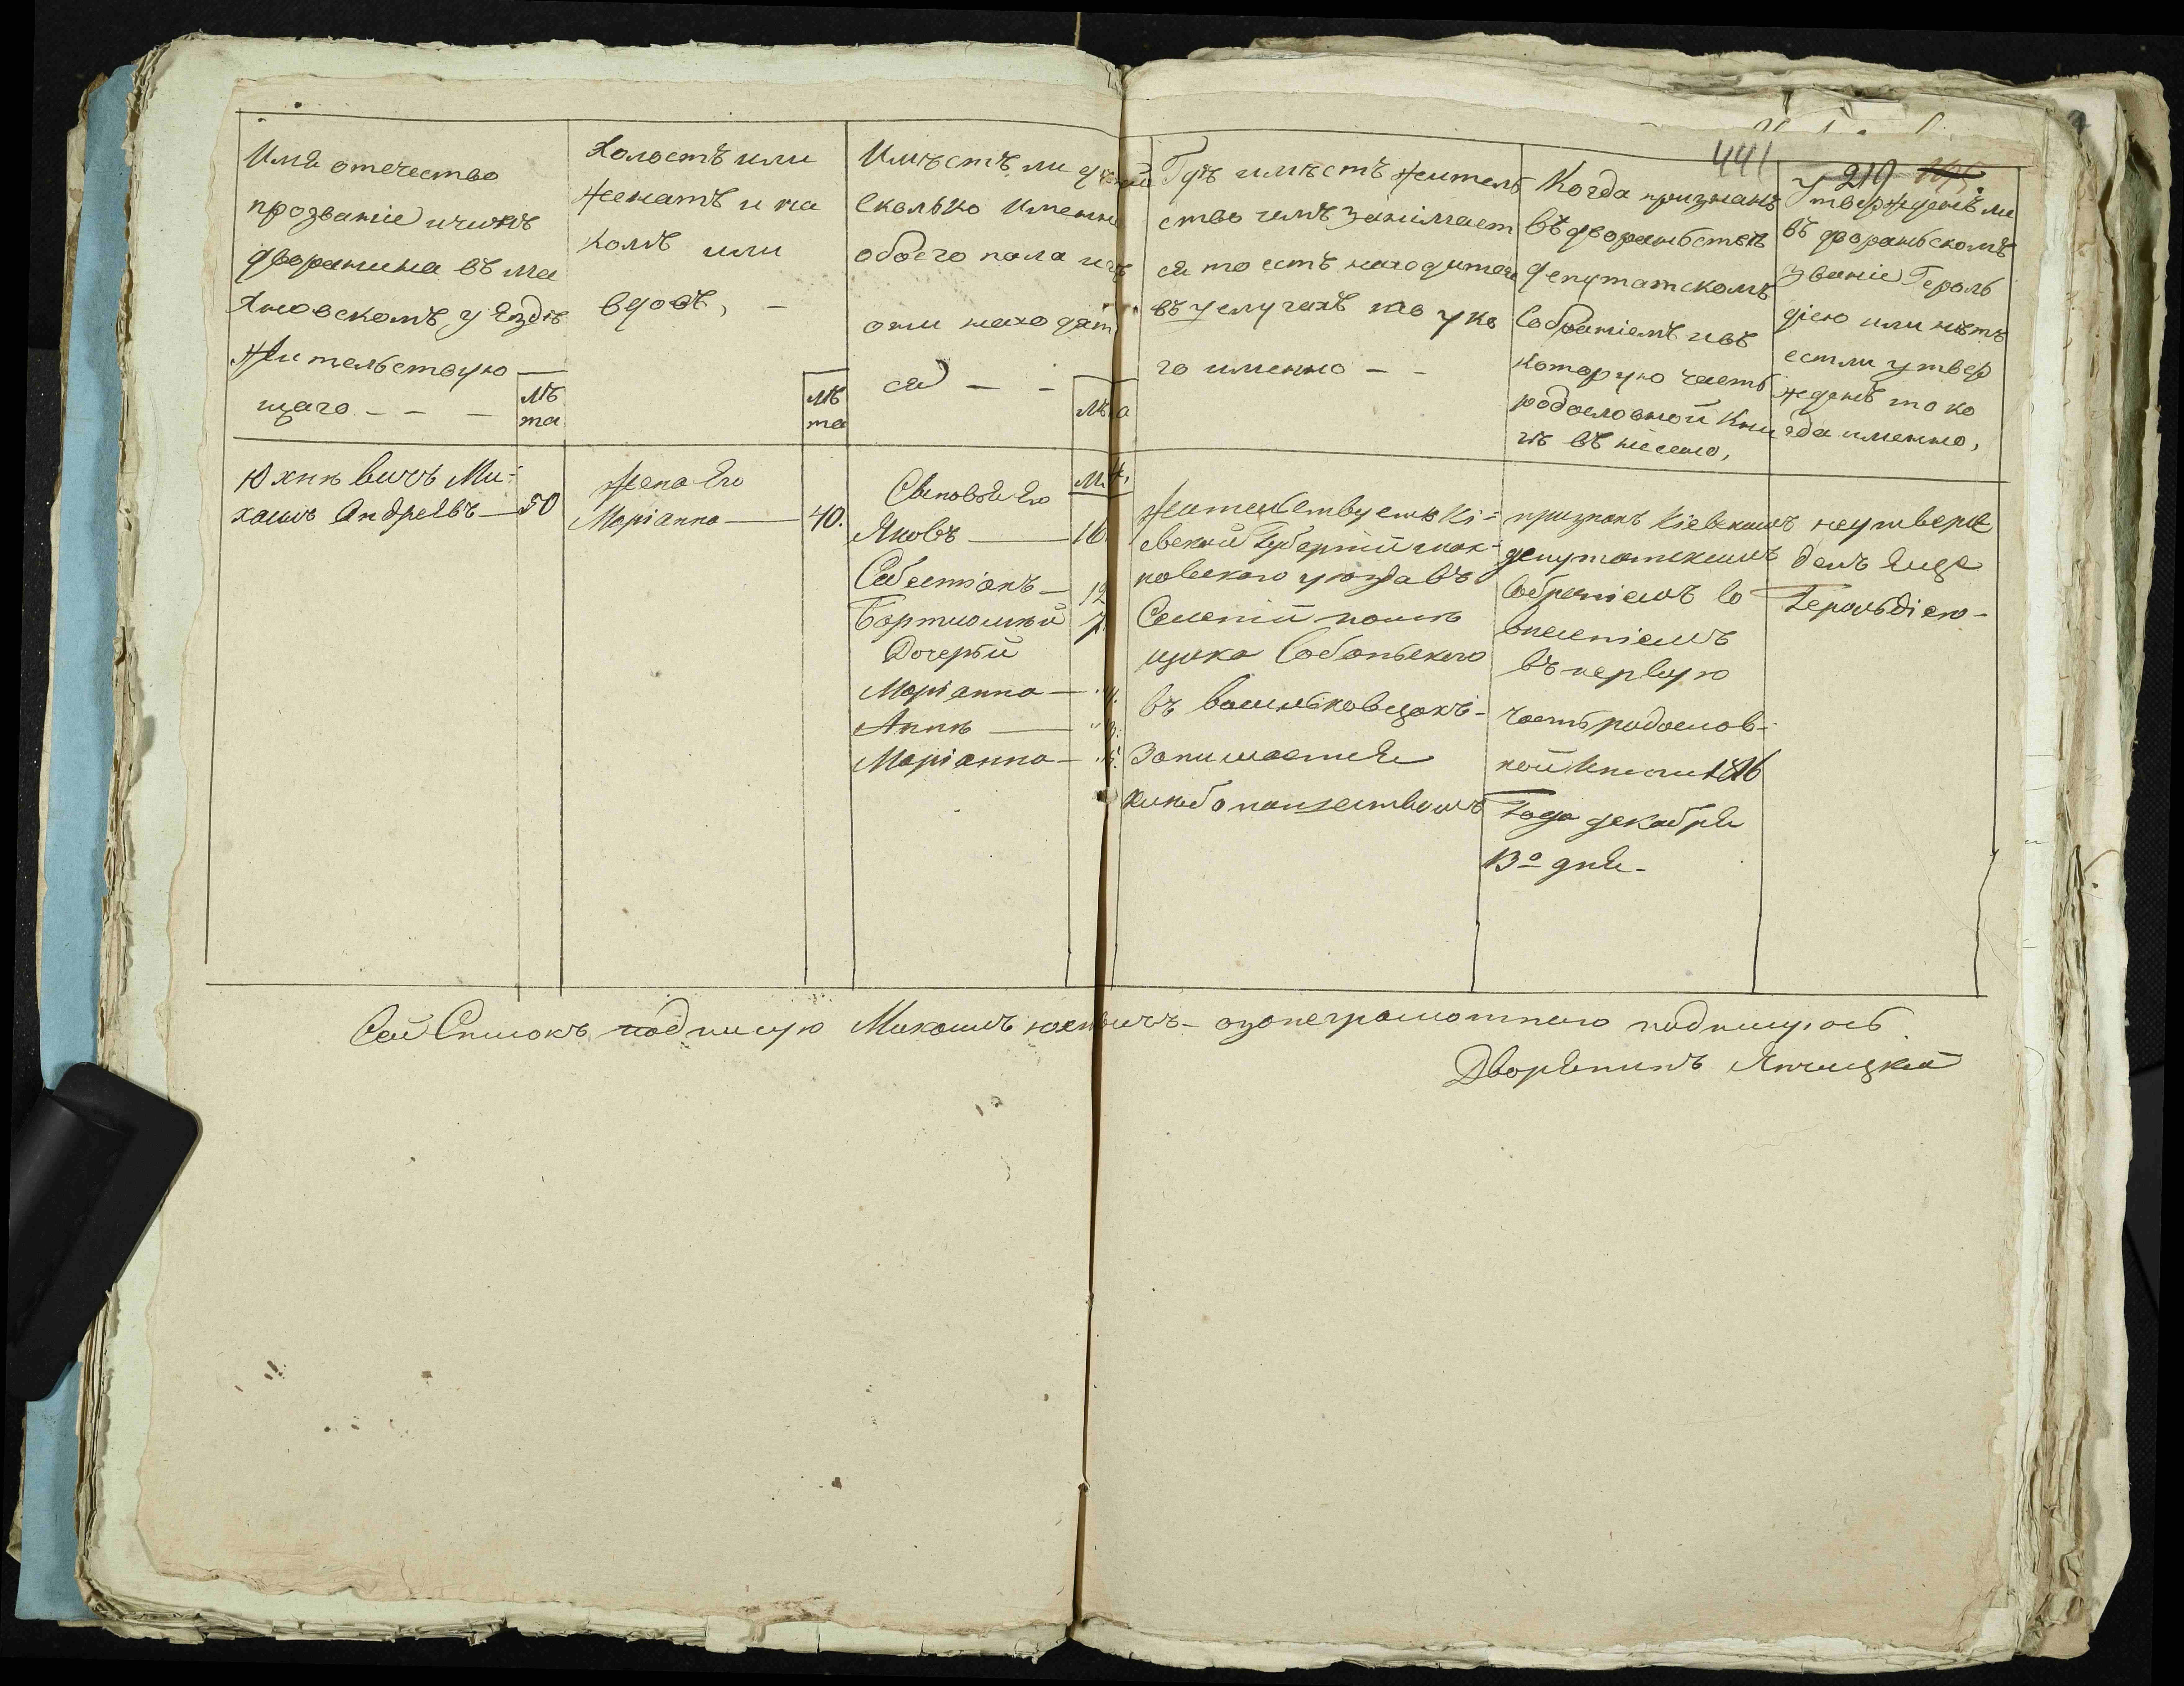 441
219
Имя отечество
прозваніе и чинъ
дворянина въ ма
хновскомъ уѣздѣ
жительствую
щаго - - -
лѣ
та
Холостъ или
женатъ и на
комъ или
вдовъ, -
лѣ
та
Имѣетъ ли дѣтей
сколько именно
обоего пола и гдѣ
они находят
ся - -
лѣта
Гдѣ имѣетъ житель
ство чемъ занимает
ся то естъ находится
въ услугахъ то у ко
го именно - -
Когда признанъ
въ дворянствѣ
Депутатскомъ
Собраніемъ и въ
которую часть
родословной Кни
гѣ внесено,
Утвержденъ ли
въ дворянскомъ
званіе Героль
діею или нѣтъ
естли утвер
жденъ то ко
гда именно,
Юхневичъ Ми-
хаилъ Андреевъ — 50
Жена Его
Маріанна — 40.
м. ж.
Сыновья Его
Яковъ — 16
Себестіанъ — 12
Бартмоліей 7.
Дочерьи
Маріанна — " 11.
Анна — " 3.
Маріанна — "
Жительствуетъ Кі-
евской Губерніи мах-
новского уезда въ
Селеніи поме
щика Собаньского
въ васильковцахъ -
Занимается
хлебопашествомъ
признанъ Кіевскимъ
депутатскимъ
Собраніемъ со
внесеніемъ
въ первую
часть родослов-
ной книги 1816
Года декабря
13º дня -
неутверж
денъ Еще
Герольдіею -
Сей Списокъ подписую Михаилъ Юхневичъ - а за неграмотного подписуюсь
Дворянинъ